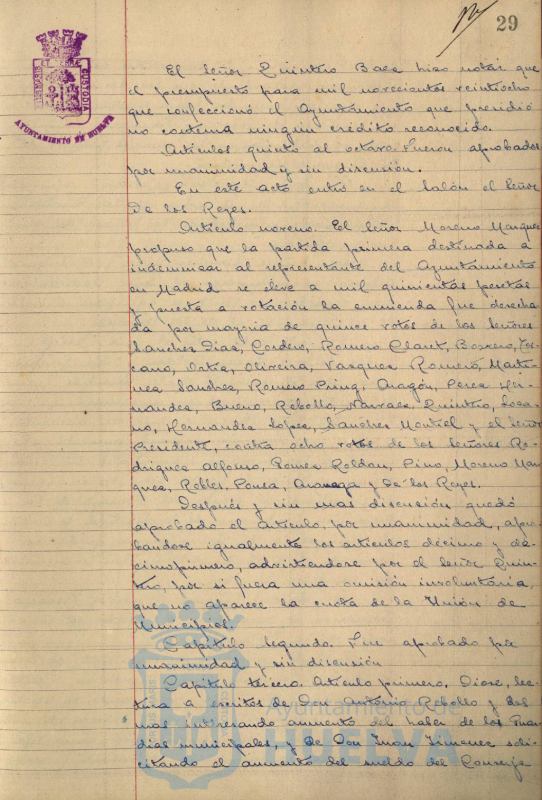 29
AYUNTAMIENTO DE HUELVA
El Señor Quintero Baez hizo notar que
el presupuesto para mil novecientos veintiocho
que confeccionó el Ayuntamiento que presidió
no contenia ningún crédito reconocido.
Articulos quinto al octavo. Fueron aprobados
por unanimidad y sin discusión.
En este acto entró en el salón el Señor
De los Reyes.
Articulo noveno. El Señor Moreno Marquez
propuso que la partida primera destinada a
indemnizar al representante del Ayuntamiento
en Madrid se eleve a mil quinientas pesetas
y puesta a votación la enmienda fue desecha-
da por mayoria de quince votos de los Señores
Sanchez Diaz, Cordero, Romero Claret, Borrero, Tos-
cano, Ortiz, Oliveira, Vazquez Romero, Marti-
nez Sanchez, Romero Aragón, Perez Her-
nandez, Bueno, Rebollo, Narvaez, Quintero, Loza-
no, Hernandez Lopez, Sanchez Montiel y el Señor
Presidente, contra ocho votos de los Señores Ro-
driguez Alfonso, Gomez Roldan, Pino, Moreno Mar-
quez, Robles, Ponza, y De los Reyes.
Después y sin mas discusión quedó
aprobado el Articulo, por unanimidad, apro-
bandose igualmente los articulos décimo y dé-
cimoprimero, advirtiendose por el Señor Quin-
tero, por si fuera una omisión involuntaria,
que no aparece la cuota de la Unión de
Municipios.
Capitulo segundo. Fue aprobado por
unanimidad y sin discusión
Capitulo tercero. Articulo primero. Diose lec-
tura a escritos de Don Antonio Rebollo y dos
mas interesando aumento del haber de los Guar-
dias municipales, y de Don Juan Jimenez soli-
citando el aumento del sueldo del Conserje
Ayuntamiento de
HUELVA